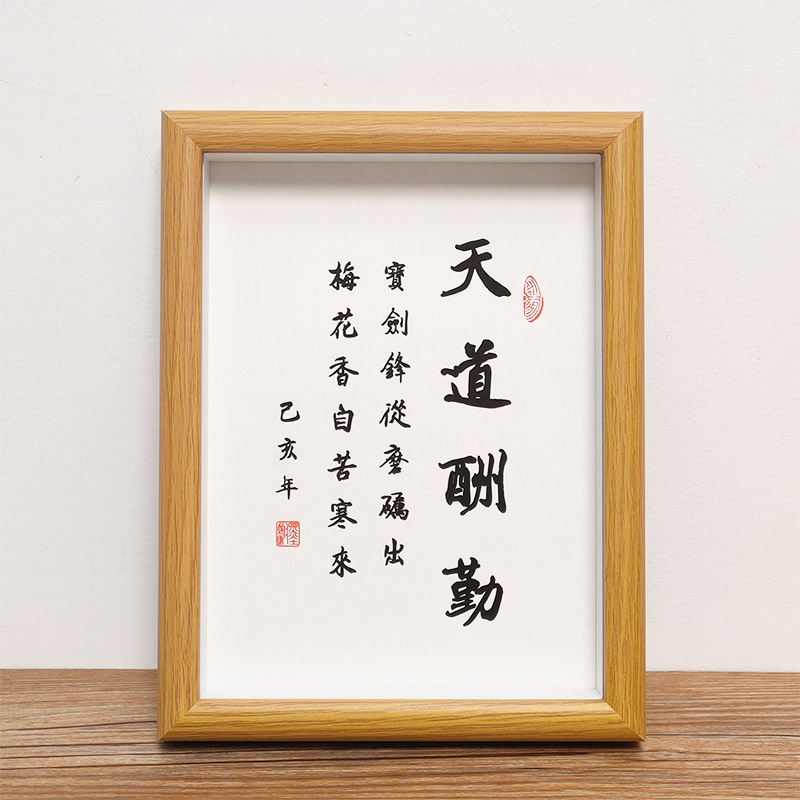 天道酬勤
寶劍鋒從磨礪出
梅花香自苦寒來
己亥年